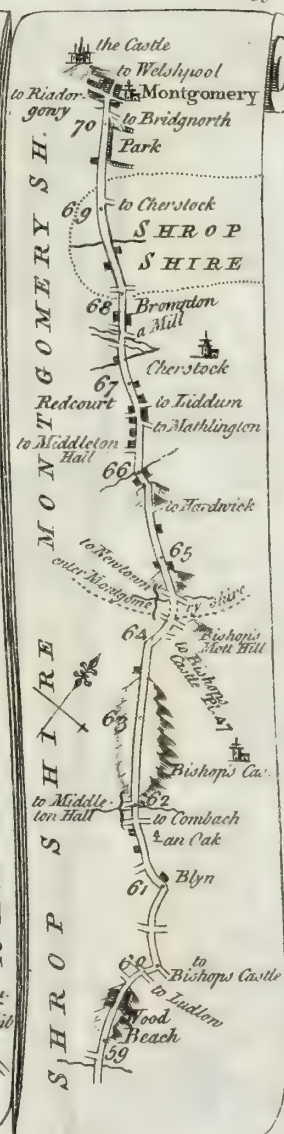 the Castle
to Welshpool
to Riador-
gowy
Montgomery
70
to Bridgnorth
Park
69
to Cherstock
SHROP
SHIRE
68
Brompton
a Mill
Cherstock
67
Redcourt
to Liddum
to Mathlington
to Middleton
Hall
66
to Hardwick
65
to Newtown
enter Montgomery shire
64
Bishop's
Mott Hill
to Bishops
Castle
Pl. 47
63
Bishops Cas.
to Middle-
ton Hall
62
to Combach
an Oak
61
Blyn
60
to
Bishops Castle
to Ludlow
Wood
Beach
59
MONTGOMERY SH.
SHROP SHIRE